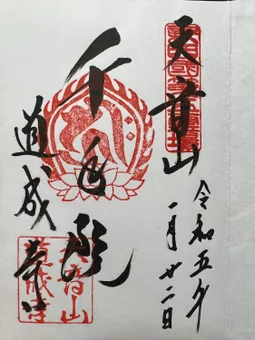 天音山
令和五年
一月廿二日
千手殿
道成寺
天音山
道成寺